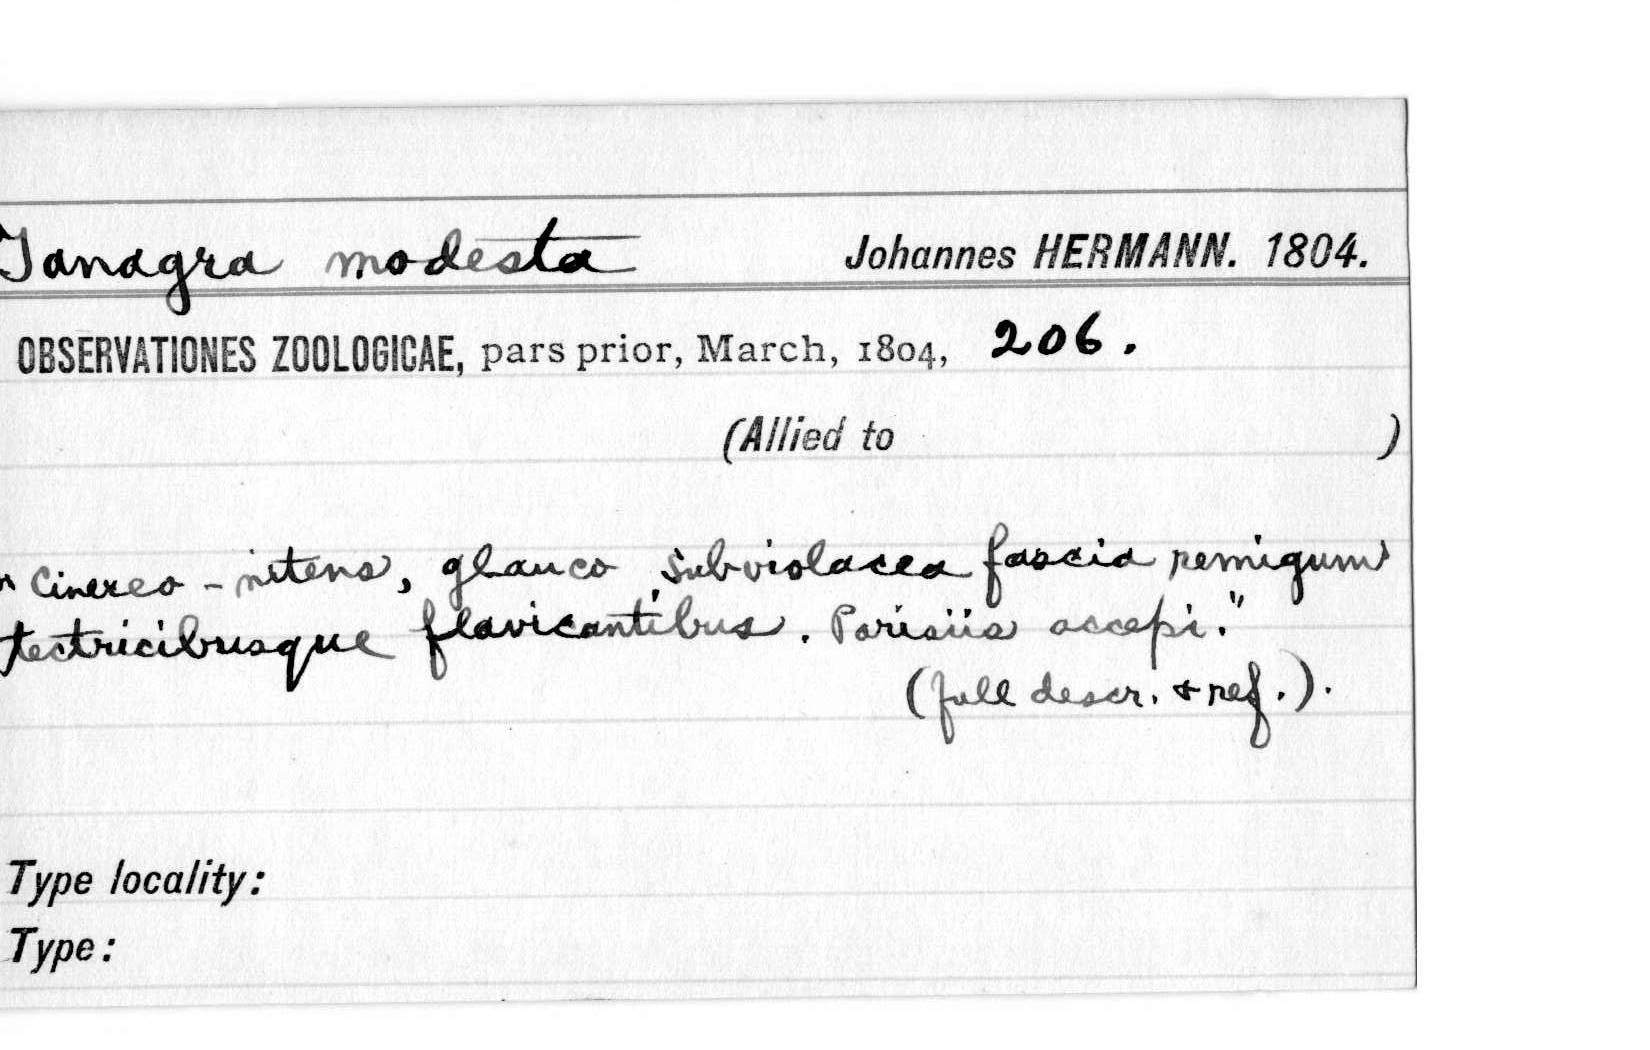 Tanagra modesta Johannes HERMANN. 1804.
OBSERVATIONES ZOOLOGICAE, pars prior, March, 1804, 206.
(Allied to )
"Cinereo-nitens, glauco subviolacea fascia remigum
tectricibusque flavicantibus. Parisiis accepi."
(full descr. & ref.).
Type locality:
Type: